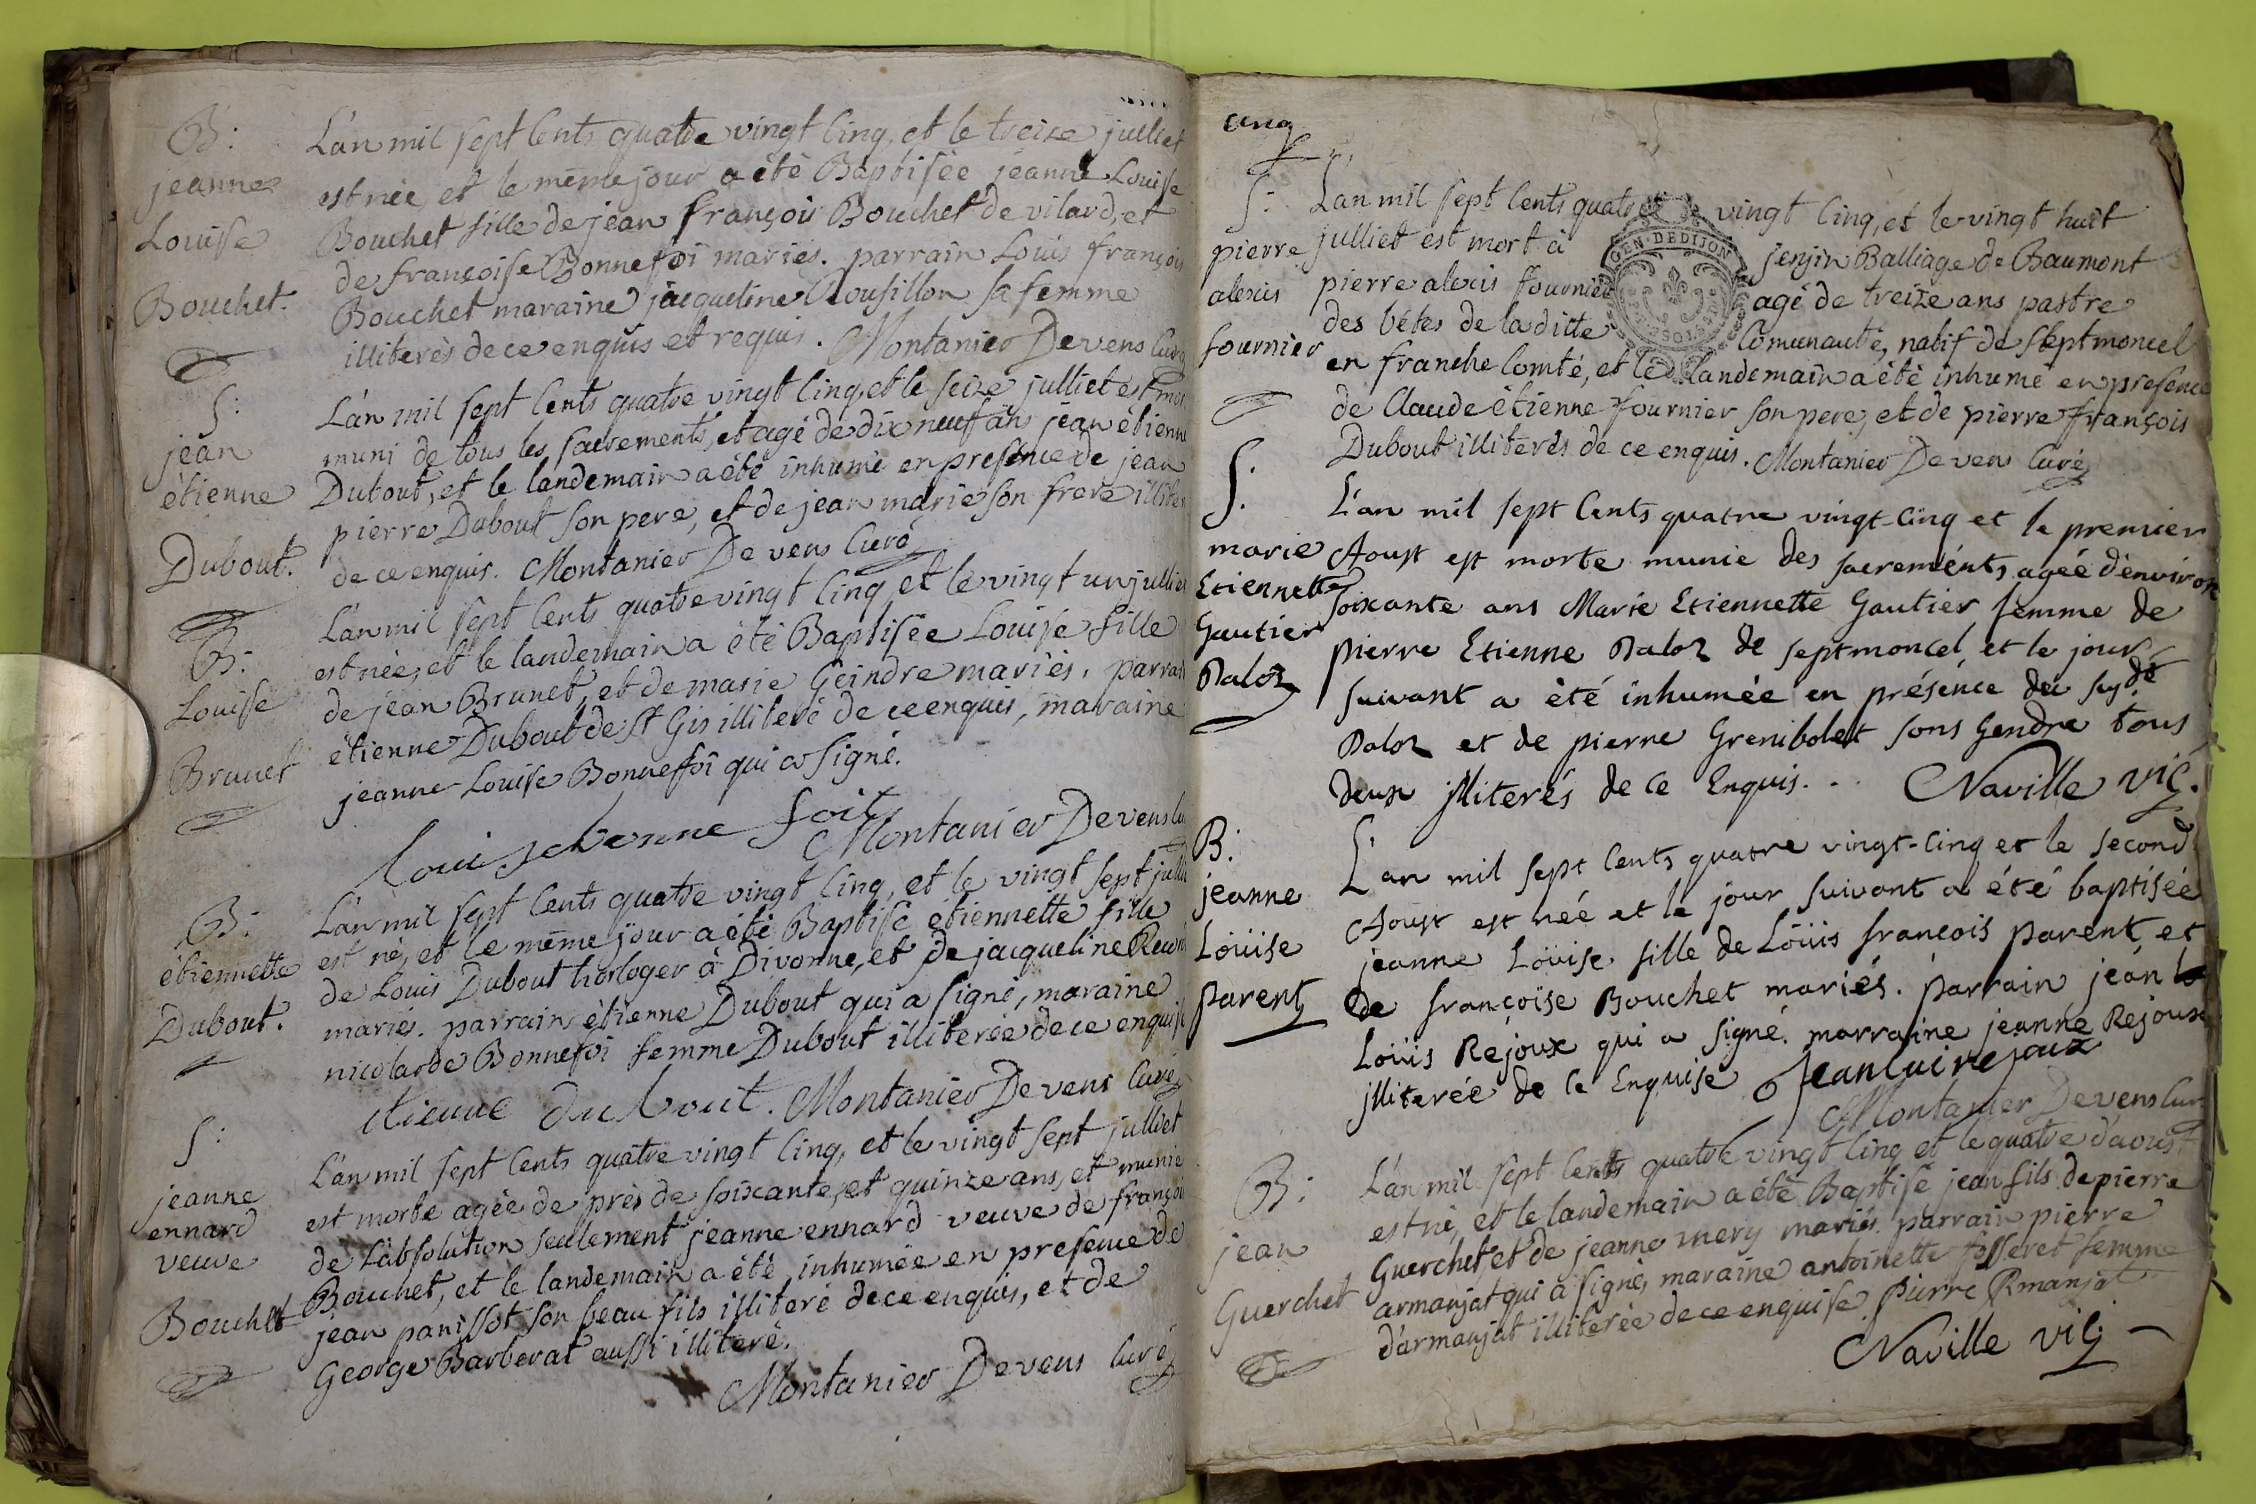 B:
jeanne
Louise
Bouchet.
L'an mil sept Cents quatre vingt Cinq, et le treize julliet
est née, et le même jour a été Baptisée jeanne Louise
Bouchet fille de jean françois Bouchet de vilard, et
de françoise Bonnefoi mariés. parrain Louis françois
Bouchet maraine jacqueline Rousillon sa femme
illiterés de ce enquis et requis. Montanier Devens Curé
S:
jean
étienne
Dubout.
L'an mil sept Cents quatre vingt Cinq, et le seize julliet est mort
muni de tous les sacrements, et agé de dix neuf ans jean étienne
Dubout, et le landemain a été inhumé en presence de jean
pierre Dubout son pere, et de jean marie son frere
de ce enquis. Montanier De vens Curé
B:
Louise
Brunet
L'an mil sept Cents quatre vingt Cinq, et le vingt un julliet
est née, et le landemain a été Baptisée Louise fille
de jean Brunet, et de marie Geindre mariés, parrain
étienne Dubout de St Gis illiteré de ce enquis, maraine
jeanne Louise Bonneffoi qui a signé.
Montanier Devens
B:
étiennette
Dubout.
L'an mil sept Cents quatre vingt Cinq, et le vingt sept julliet
est né, et le même jour a été Baptisé étiennette fille
de Louis Dubout horloger à Divonne, et de jacqueline
mariés. parrain étienne Dubout qui a signé, maraine
nicolarde Bonnefoi femme Dubout illiterée de ce enquise
etienne du bout. Montanier De vens Curé
S:
jeanne
ennard
veuve
Bouchet
L'an mil sept Cents quatre vingt Cinq, et le vingt sept julliet
est morte agée de près de soixante, et quinze ans, et munie
de L'absolution seulement jeanne ennard veuve de françois
Bouchet, et le landemain a été inhumée en presence de
jean panissot son beau fils illiteré de ce enquis, et de
George Barberat aussi illiteré.
Montanier Devens Curé
cinq
S:
pierre
alexis
fournier
L'an mil sept Cents quatre vingt Cinq, et le vingt huit
julliet est mort à senjin Balliage de Baumont
pierre alexis fournier agé de treize ans pastre
des bêtes de la ditte Comunauté, natif de Septmoncel
en franche Comté, et le landemain a été inhumé en presence
de Claude étienne fournier son pere, et de pierre françois
Dubout illiterés de ce enquis. Montanier De vens Curé
GEN. DE DIJON
S.
marie
Etiennette
Gautier
Daloz
L'an mil sept Cents quatre vingt-Cinq et le premier
Aoust est morte munie des sacreménts agée d'environ
soixante ans Marie Etiennette Gautier femme de
pierre Etienne Daloz de septmoncel et le jour
suivant a été inhumée en présence du sydt
Daloz et de pierre Grenibolet sons Gendre tous
deux jlliterés de Ce Enquis. .. Naville vic.
B:
jeanne
Loüise
parent
L'an mil sept Cents quatre vingt-Cinq et le second
Aoust est neé et le jour suivant a été baptisée
jeanne Loüise fille de Loüis françois parent et
de françoise Bouchet mariés. parrain jean
Loüis Rejoux qui a signé. marraine jeanne Rejoux
jlliterée de Ce Enquise Jean Luirejoux
Montanier Devens Curé
B:
jean
Guerchet
L'an mil sept Cents quatre vingt Cinq et le quatre d'aoust
est né, et le landemain a été Baptisé jean fils de pierre
Guerchet et de jeanne mery mariés. parrain pierre
armanjat qui a signé, maraine antoinette fesseret femme
d'armanjat illiterée de ce enquise. pierre Rmanjat
Naville vic